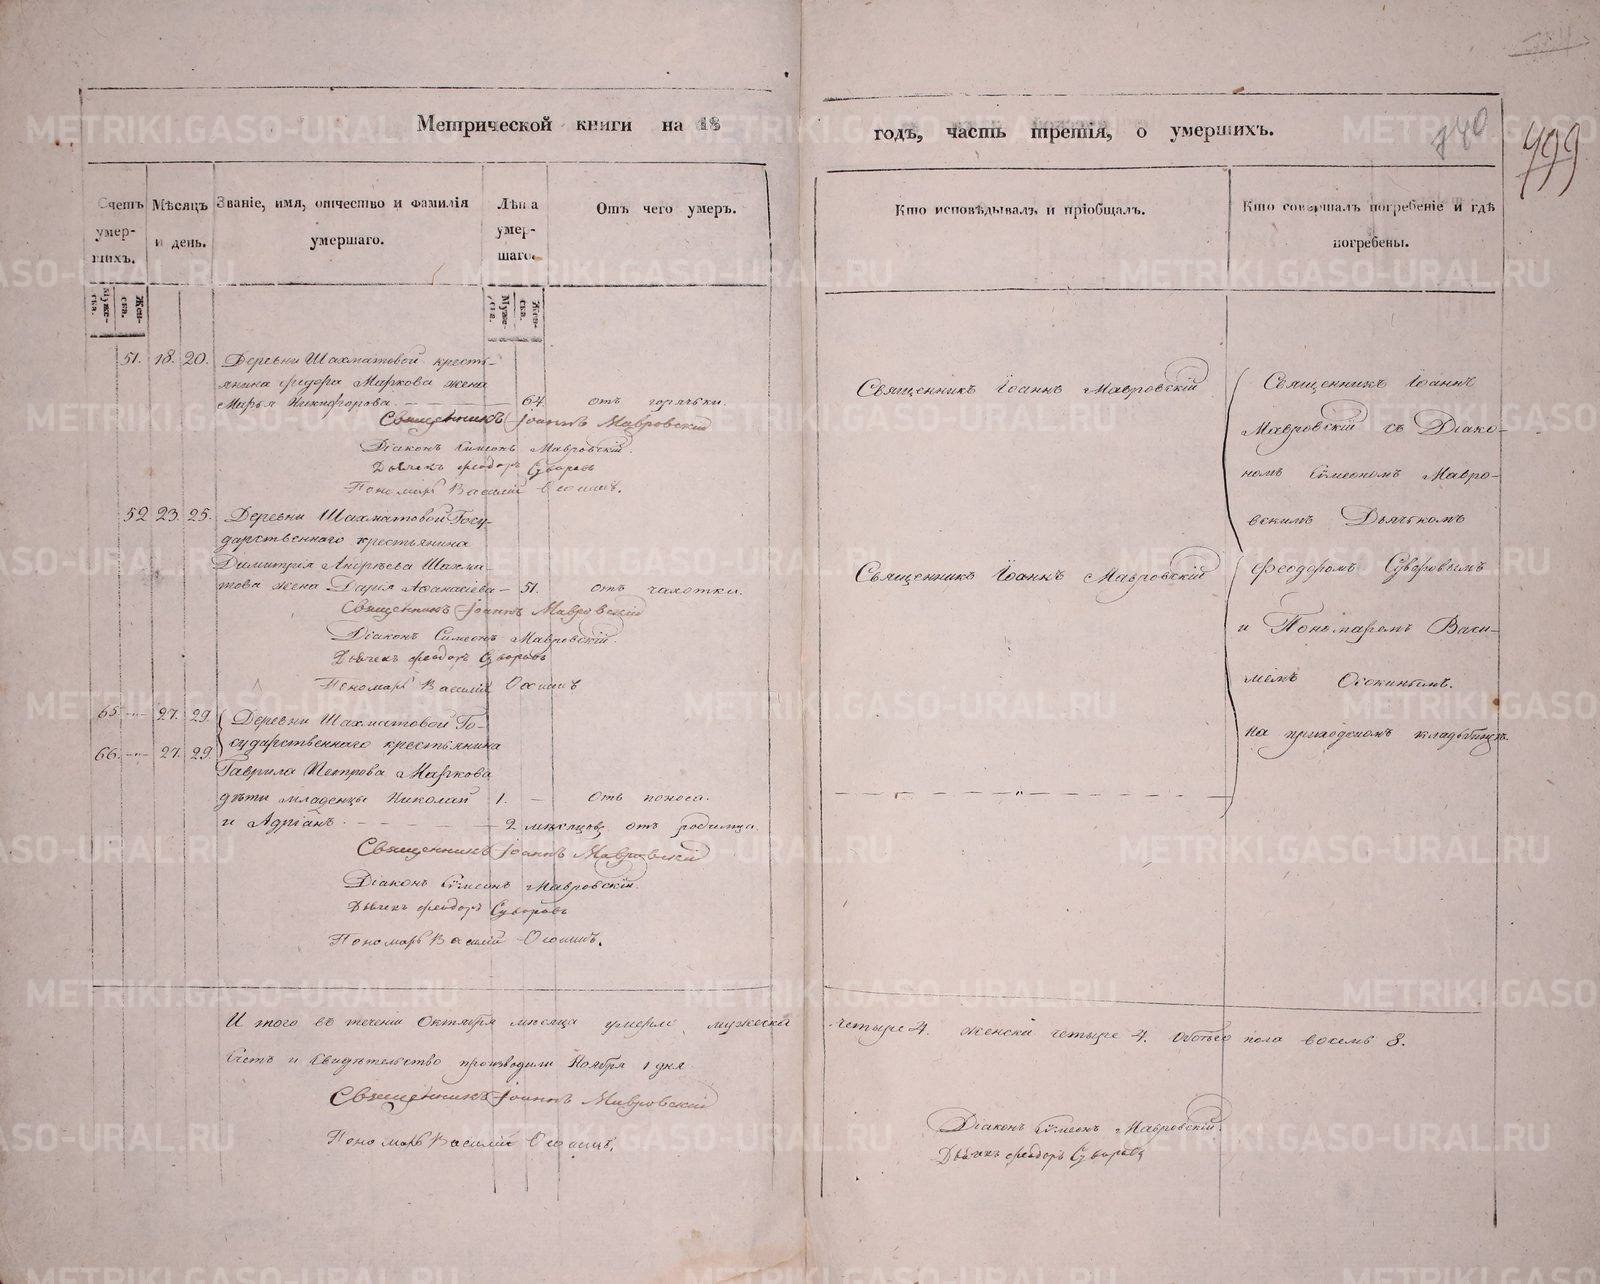 Метрической книги на 18
годъ, часть третія, о умершихъ.
740
799
Счетъ умер-шихъ.
Мѣсяцъ и день.
Званіе, имя, отчество и фамилія умершаго.
Лѣта умер-шаго.
Отъ чего умеръ.
Кто исповѣдывалъ и пріобщалъ.
Кто совершалъ погребеніе и гдѣ погребены.
Муже-ска.
Жен-ска.
Муже-ска.
Жен-ска.
51. 18. 20. Деревни Шахматовой кресть-
янина Ѳедора Маркова жена
Марья Никифорова. 64. отъ горячки.
Священникъ Іоаннъ Мавровскій
Діаконъ Симеонъ Мавровскій.
Дьячекъ Ѳеодоръ Суворовъ
Пономарь Василій Осокинъ.
Священникъ Іоаннъ Мавровскій
52 23. 25. Деревни Шахматовой Госу-
дарственнаго крестьянина
Димитрія Андрѣева Шахма-
това жена Дарія Аѳанасіева - 51. отъ чахотки.
Священникъ Іоаннъ Мавровскій
Діаконъ Симеонъ Мавровскій.
Дьячекъ Ѳеодоръ Суворовъ
Пономарь Василій Осокинъ
Священникъ Іоаннъ Мавровскій
65. -"- 27. 29. Деревни Шахматовой Го-
сударственнаго крестьянина
66. -"- 27. 29.
Гаврила Петрова Маркова
дѣти младенцы Николай 1. - отъ поноса.
и Адріанъ. 2 мѣсяцовъ, отъ родимца.
Священникъ Іоаннъ Мавровскій
Діаконъ Симеонъ Мавровскій.
Дьячекъ Ѳеодоръ Суворовъ
Пономарь Василій Осокинъ.
Священникъ Іоаннъ
Мавровскій съ Діако-
номъ Симеономъ Мавро-
вскимъ Дьячкомъ
Ѳеодоромъ Суворовымъ
и Пономаремъ Васи-
ліемъ Осокинымъ.
На приходскомъ кладбищѣ.
И того въ теченіи Октября мѣсяца умерло мужеска четыре 4. женска четыре 4. обоего пола восемь 8.
Счетъ и свидѣтельство производили Ноября 1 дня
Священникъ Іоаннъ Мавровскій
Пономарь Василій Осокинъ.
Діаконъ Симеонъ Мавровскій.
Дьячекъ Ѳеодоръ Суворовъ
METRIKI.GASO-URAL.RU